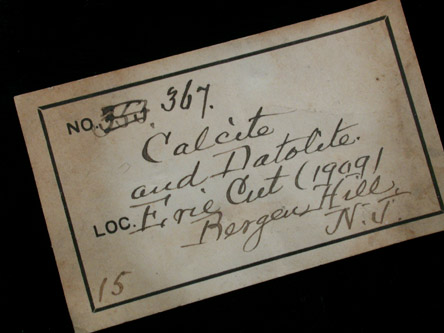 NO. 367.
Calcite
and Datolite.
LOC. Erie Cut (1909)
Bergen Hill,
N.J.
15